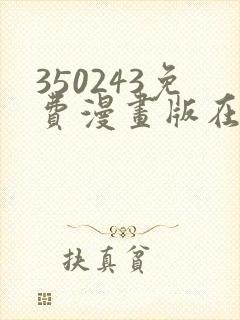 350243免
费漫畫版在
扶真貧